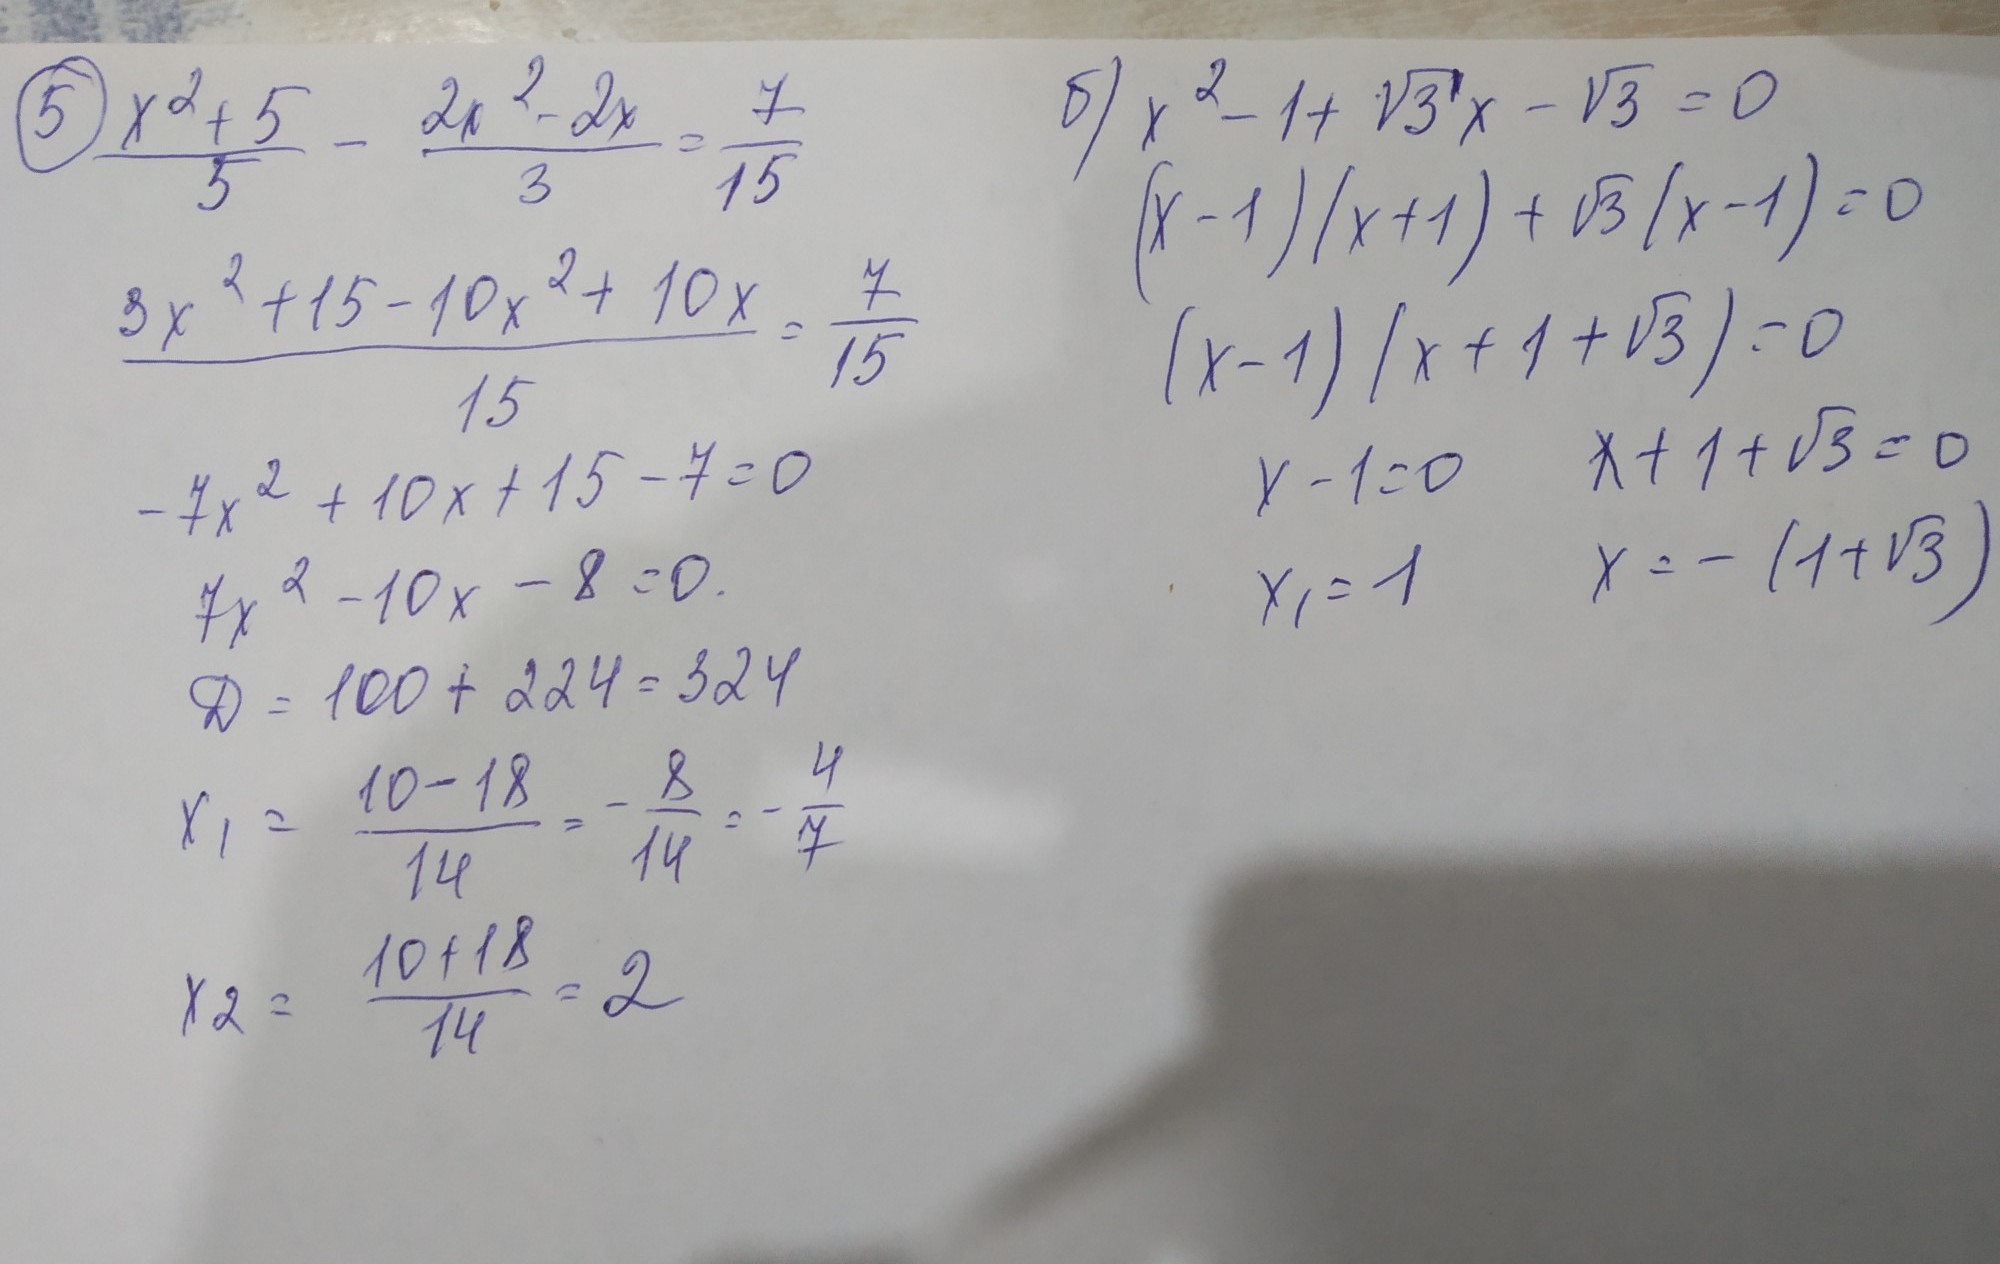 5 (x²+5)/5 - (2x²-2x)/3 = 7/15
(3x²+15-10x²+10x)/15 = 7/15
-7x²+10x+15-7=0
7x²-10x-8=0.
D=100+224=324
x₁ = (10-18)/14 = -8/14 = -4/7
x2 = (10+18)/14 = 2
б) x²-1+√3x-√3=0
(x-1)(x+1)+√3(x-1)=0
(x-1)(x+1+√3)=0
x-1=0 x+1+√3=0
x₁=1 x=-(1+√3)